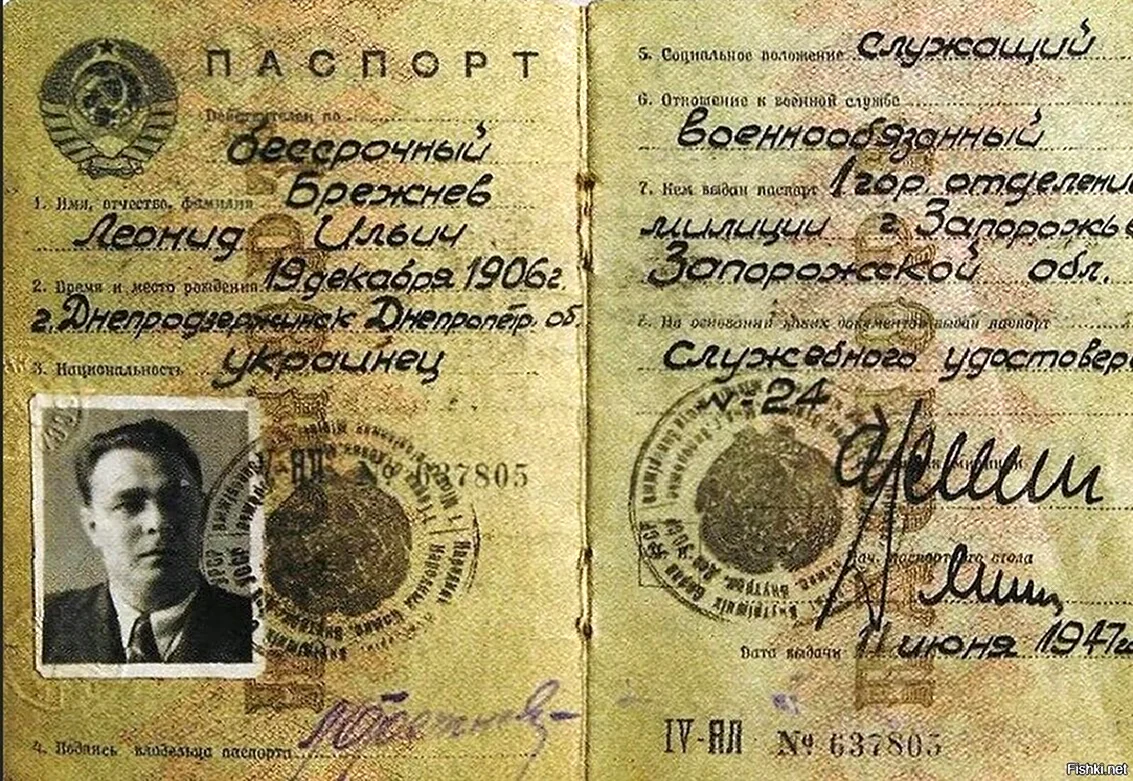 ПАСПОРТ
Действителен по
бессрочный
1. Имя, отчество, фамилия Брежнев
Леонид Ильич
2. Время и место рождения 19 декабря 1906 г.
г. Днепродзержинск Днепропетр. об.
3. Национальность украинец
IV-ЯЛ № 637805
4. Подпись владельца паспорта
5. Социальное положение служащий
6. Отношение к военной службе
военнообязанный
7. Кем выдан паспорт 1 гор. отделени
милиции г Запорожье
Запорожской обл.
8. На основании каких документов выдан паспорт
служебного удостовере
№-24
Нач. паспортного стола
Дата выдачи 11 июня 1947г
IV-ЯЛ № 637805
Fishki.net